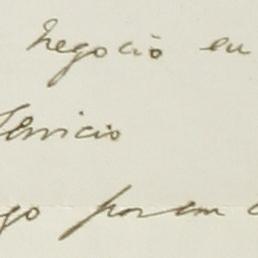 negocio eu
servicio
go porem